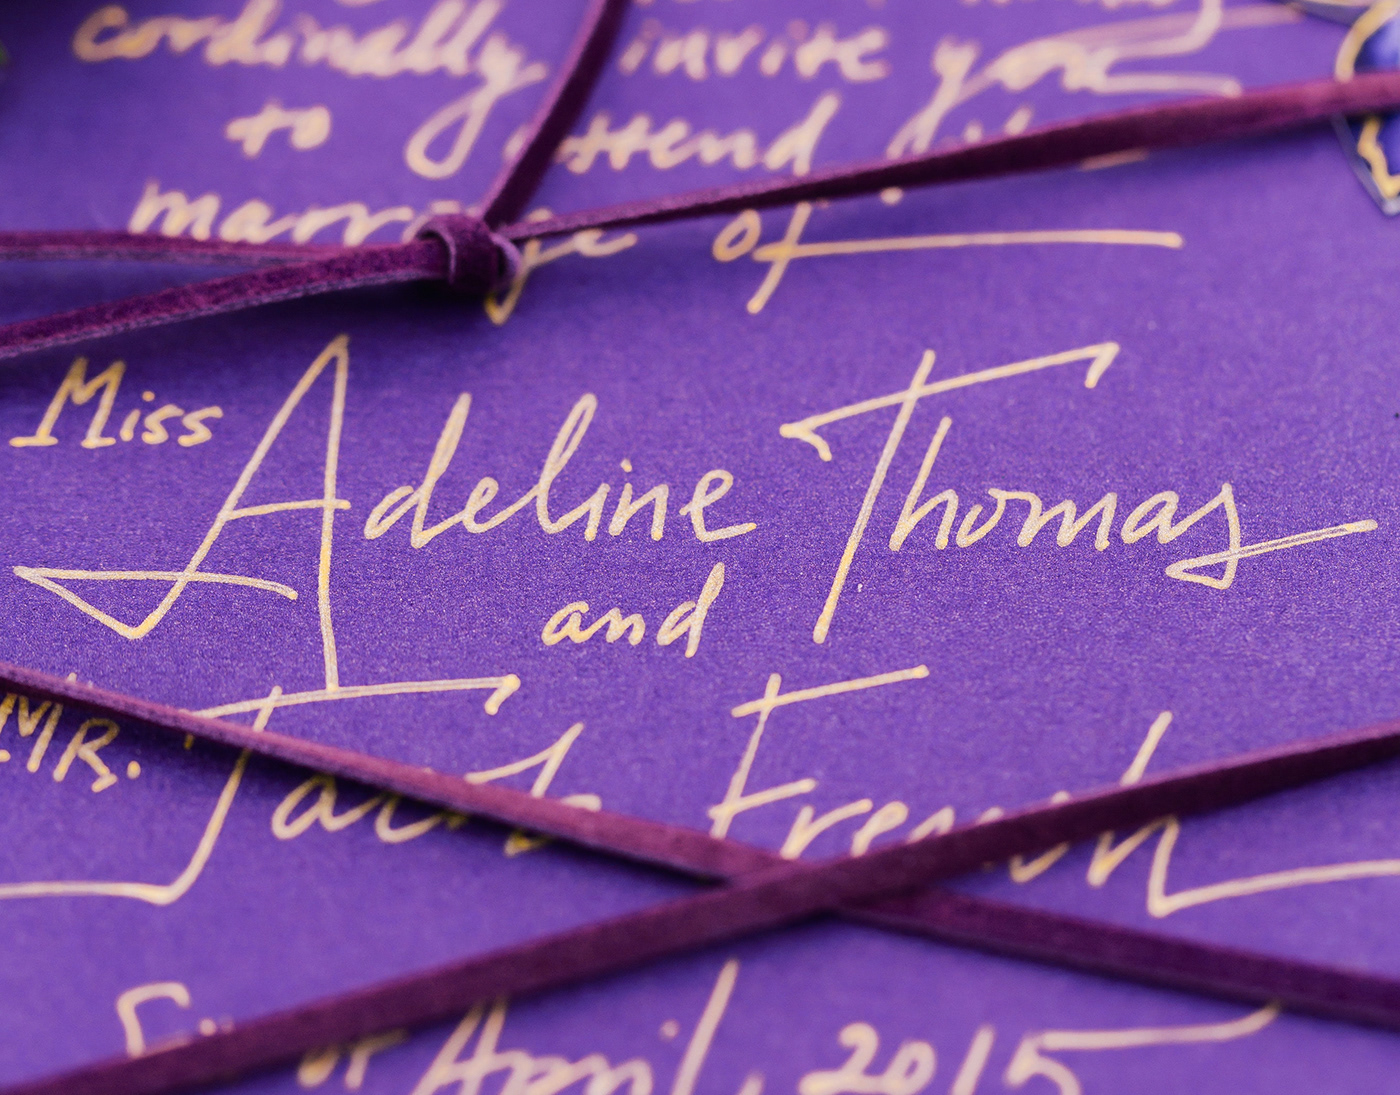 cordinally invite you
to attend the
marriage of
Miss Adeline Thomas
and
MR. Jacob French
of April, 2015